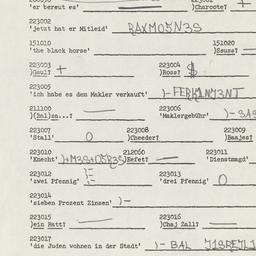 'er bereut es' )Charoote? +
223002
'jetzt hat er Mitleid' RAXMO5N3S
151010 151020
'the black horse' )Ssuss?
223003 223004
)Gaul? + )Ross? $
223005
'ich habe es dem Makler verkauft'
211100 223006
)(Bal)za...? 'Maklergebühr'
223007 223008 223009
'Stall' O )Cheeder? )Baajes?
223010 212060 223011
'Knecht' )Eefet? 'Dienstmagd'
223012 223013
'zwei Pfennig' 'drei Pfennig' O
223014
'sieben Prozent Zinsen' )-
223015 223016
)ein Ratt? )Chaj Zall?
223017
'die Juden wohnen in der Stadt' )- BAL